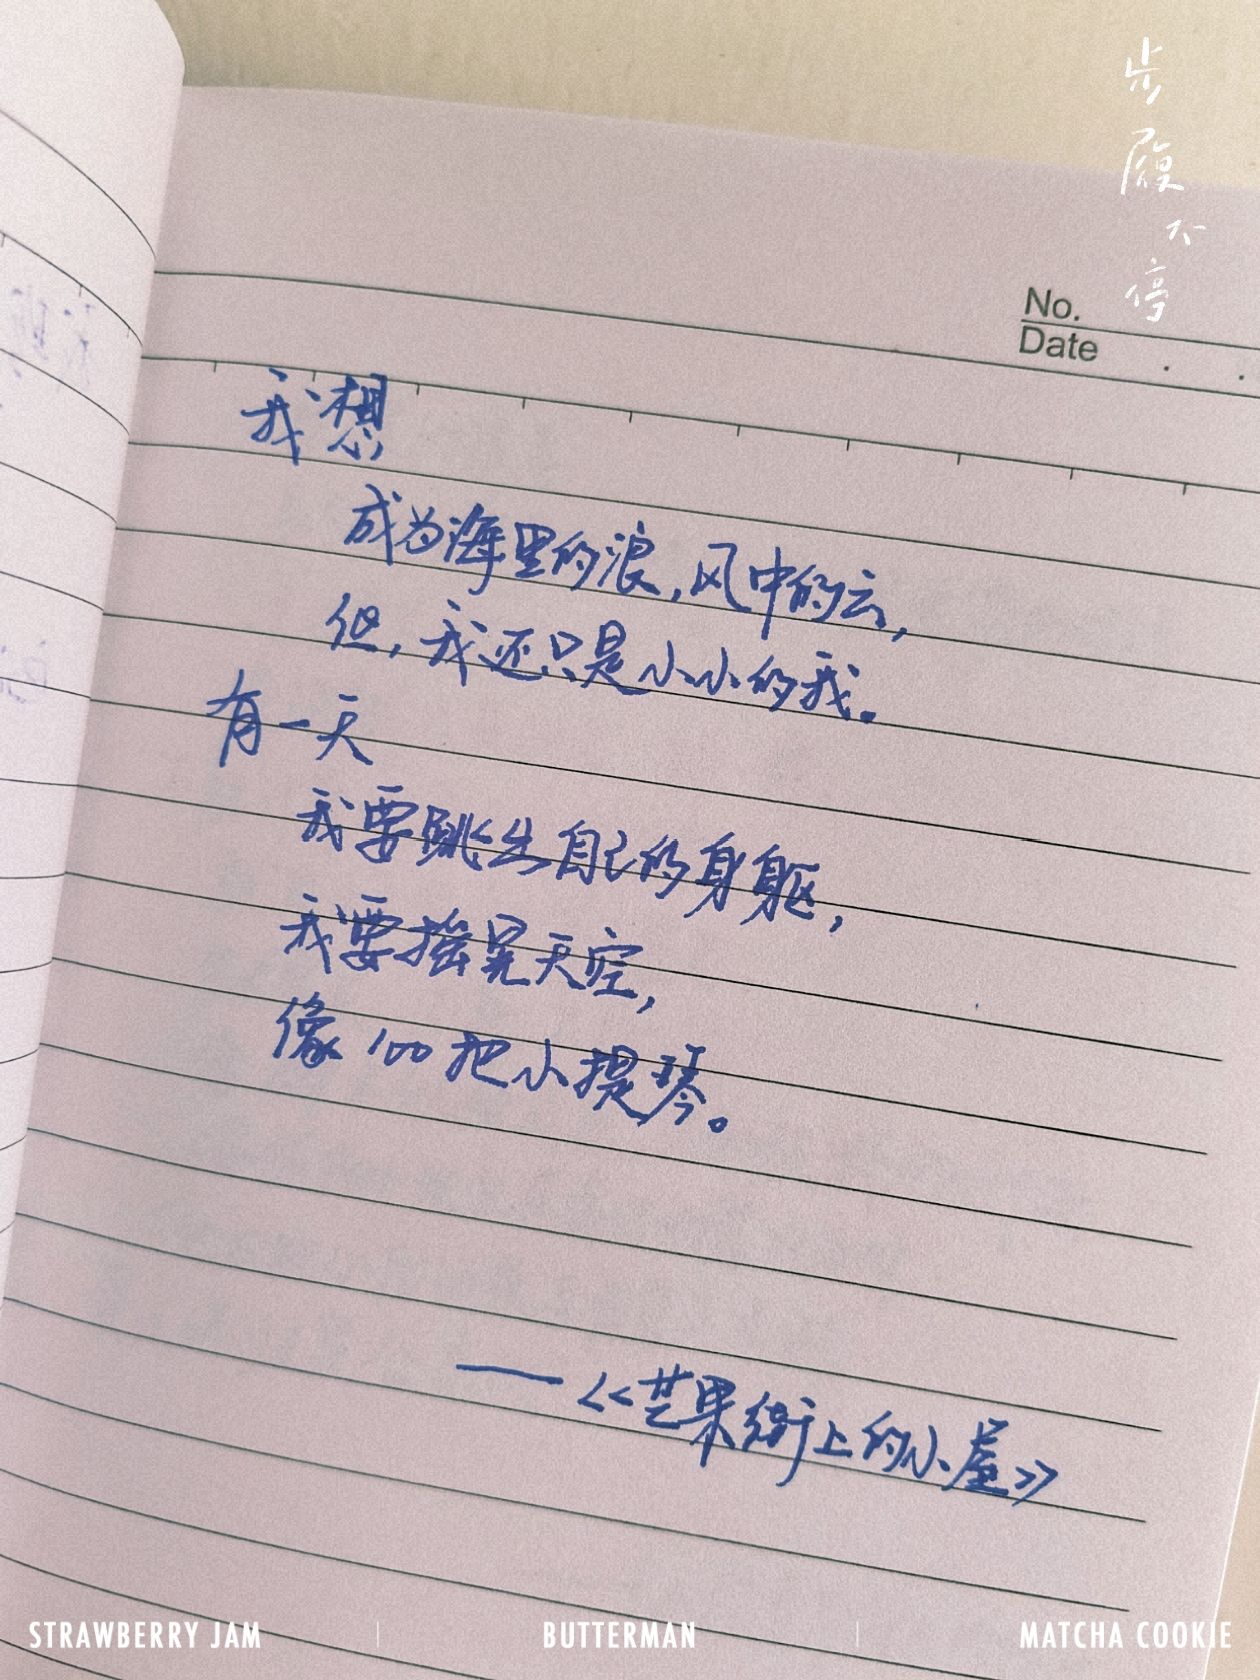 步履不停
No.
Date
我想
成为海里的浪，风中的云，
但，我还只是小小的我。
有一天
我要跳出自己的身躯，
我要摇晃天空，
像100把小提琴。
——《芒果街上的小屋》
STRAWBERRY JAM
BUTTERMAN
MATCHA COOKIE